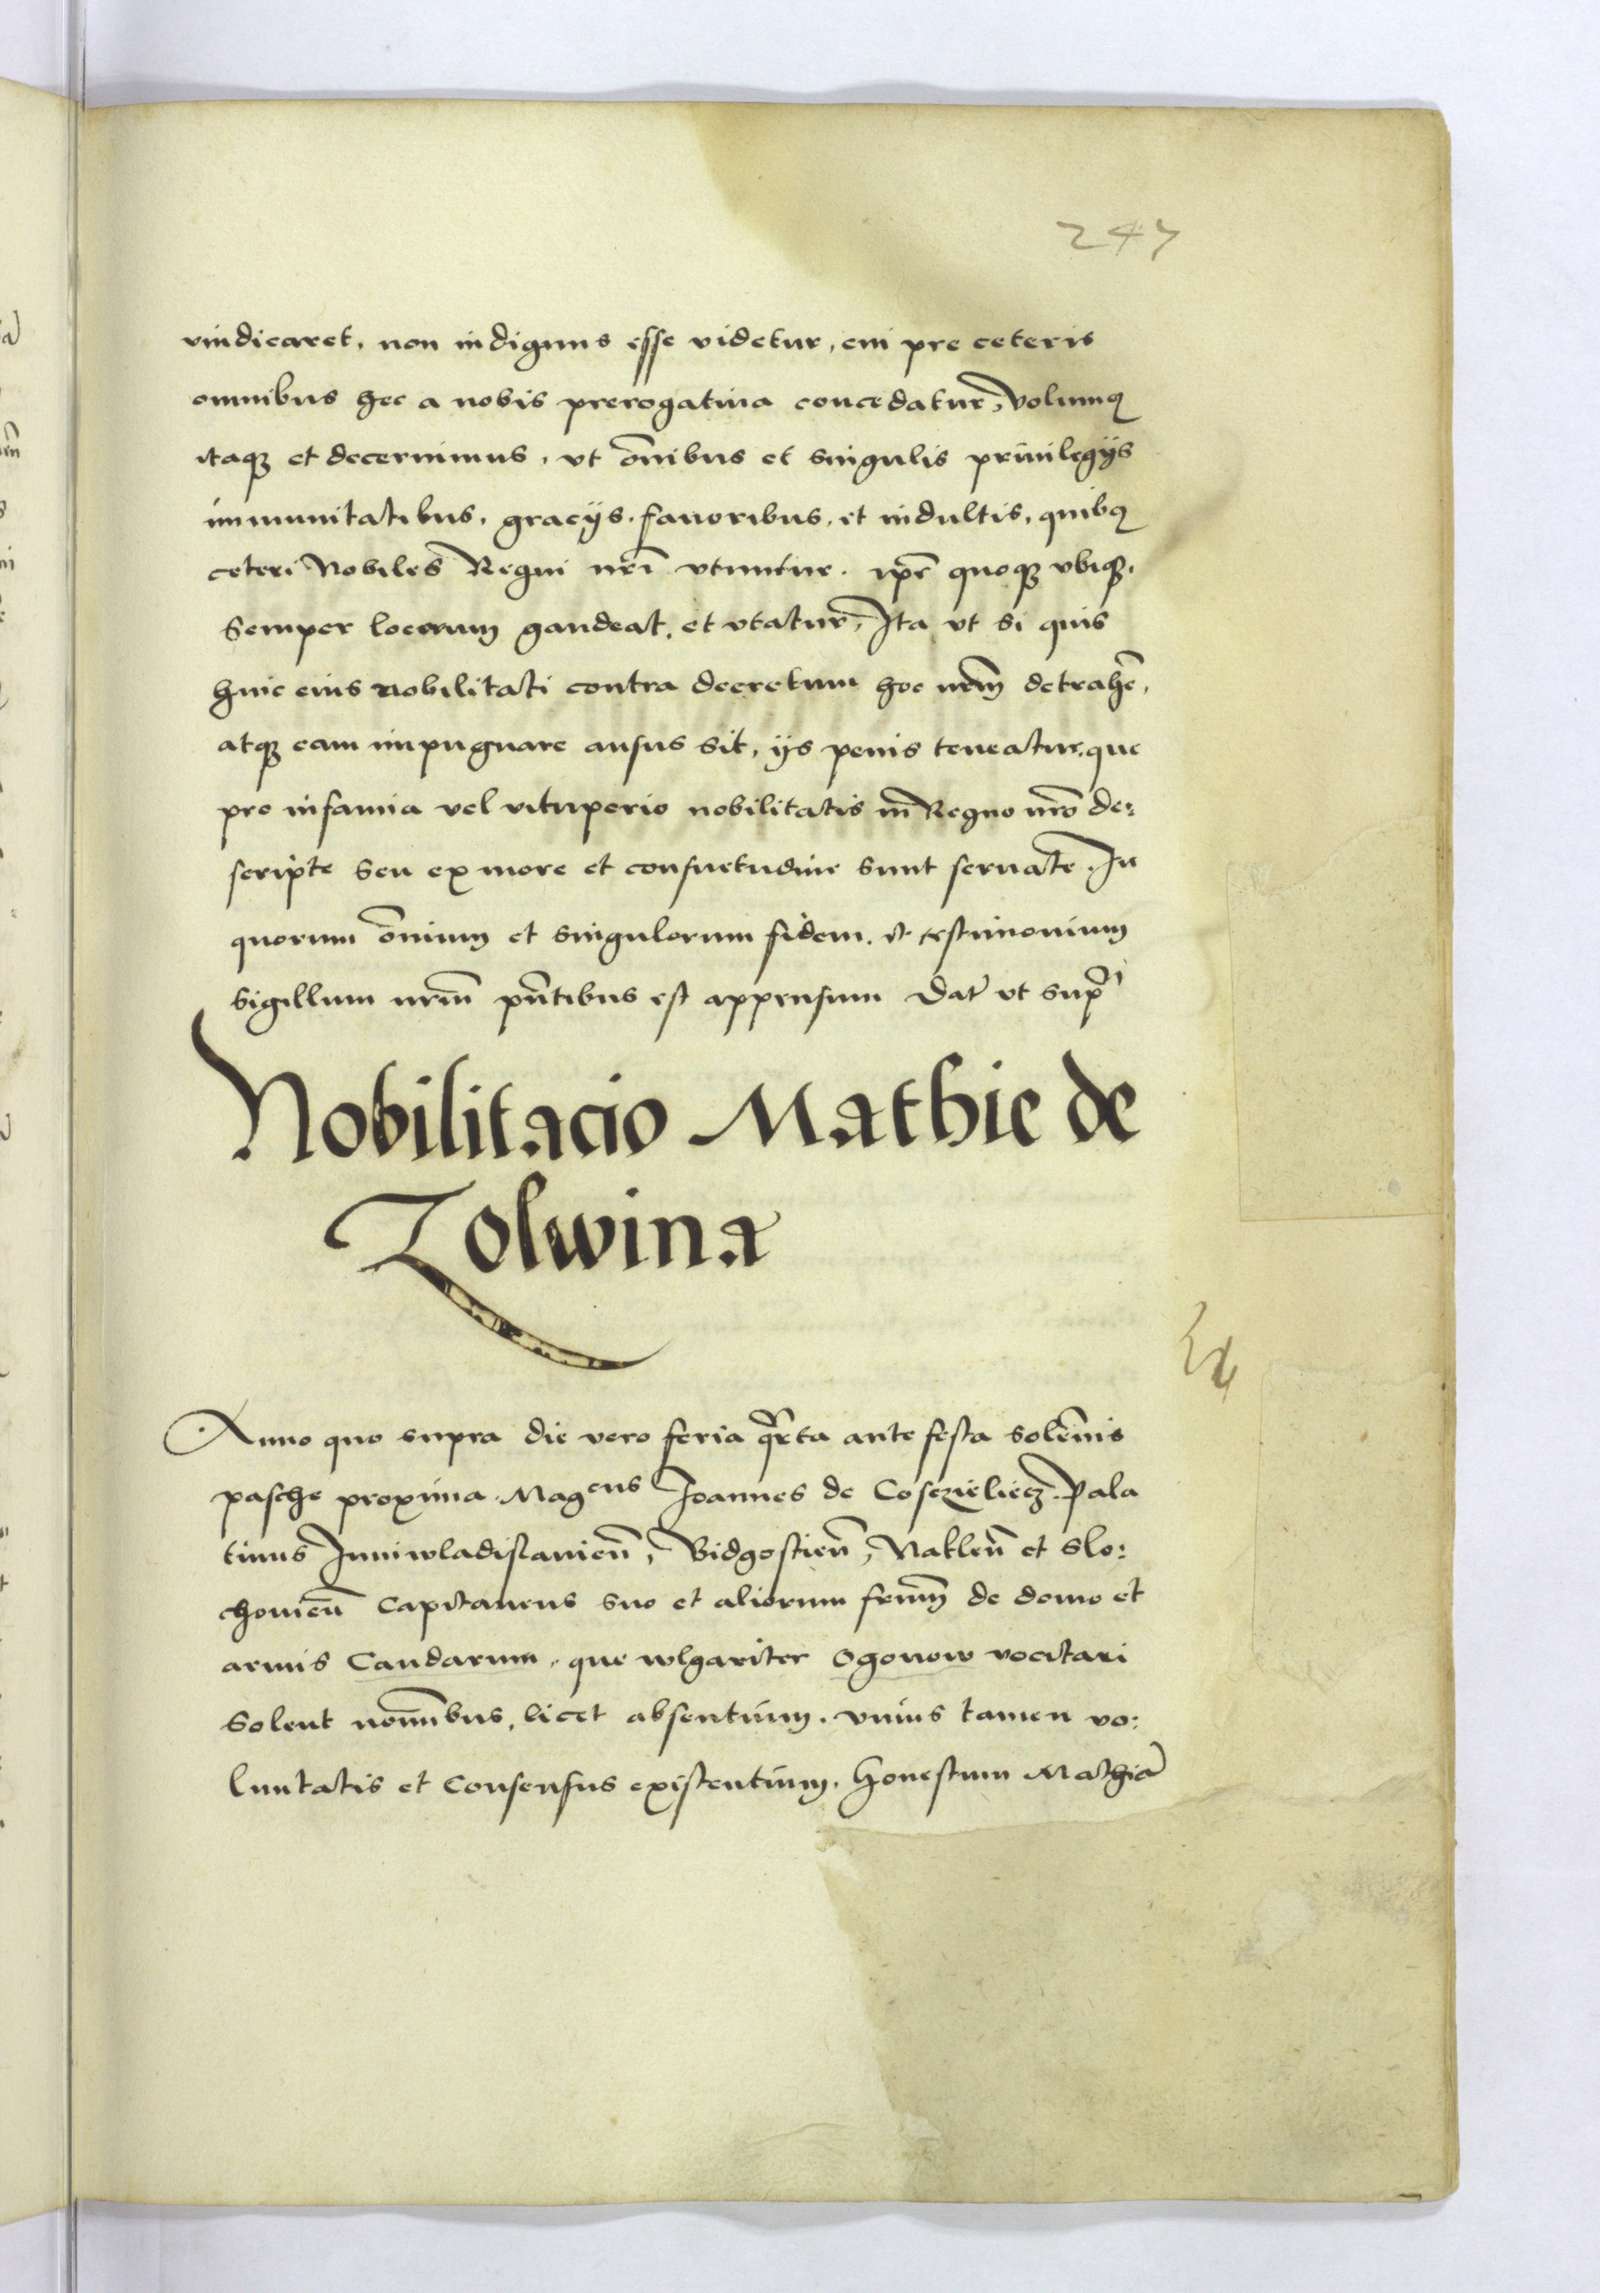 247
vindicaret, non indignus esse videtur, cui pre ceteris
omnibus hec a nobis prerogativa concedatur, Volumꝰ
itaqꝫ et decernimus, vt om̄ibus et singulis privilegijs
immunitatibus, gracijs, favoribus, et indultis, quibꝰ
ceteri Nobiles Regni nr̄i vtuntur, ip̄e quoqꝫ vbiqꝫ,
semper locorum gaudeat, et vtatur, Ita vt si quis
huic eius nobilitati contra decretum hoc nr̄m detrahe͞,
atqꝫ eam impugnare ausus sit, ijs penis teneatur, que
pro infamia vel vituperio nobilitatis in Regno nr̄o de:
scripte seu ex more et consuetudine sunt servate. In
quorum om̄ium et singulorum fidem et testimonium
sigillum nr̄m pn̄tibus est appensum Dat̄ vt supᵃ
Nobilitacio Mathie de
Zolwina
Anno quo supra die vero feria qᵃrta ante festa solen̄is
pasche proxima Magᶜᵘˢ Joannes de Coscziẻliecz Pala
tinus Juniwladislavien̄, Bidgostien̄, Naklen̄ et Slo:
chovien̄ Capitaneus suo et aliorum frūm de domo et
armis Caudarum, que wlgariter Ogonow vocitari
solent nom̄ibus, licet absentium, vnius tamen vo:
luntatis et Consensus existentium, honestum Mathiā